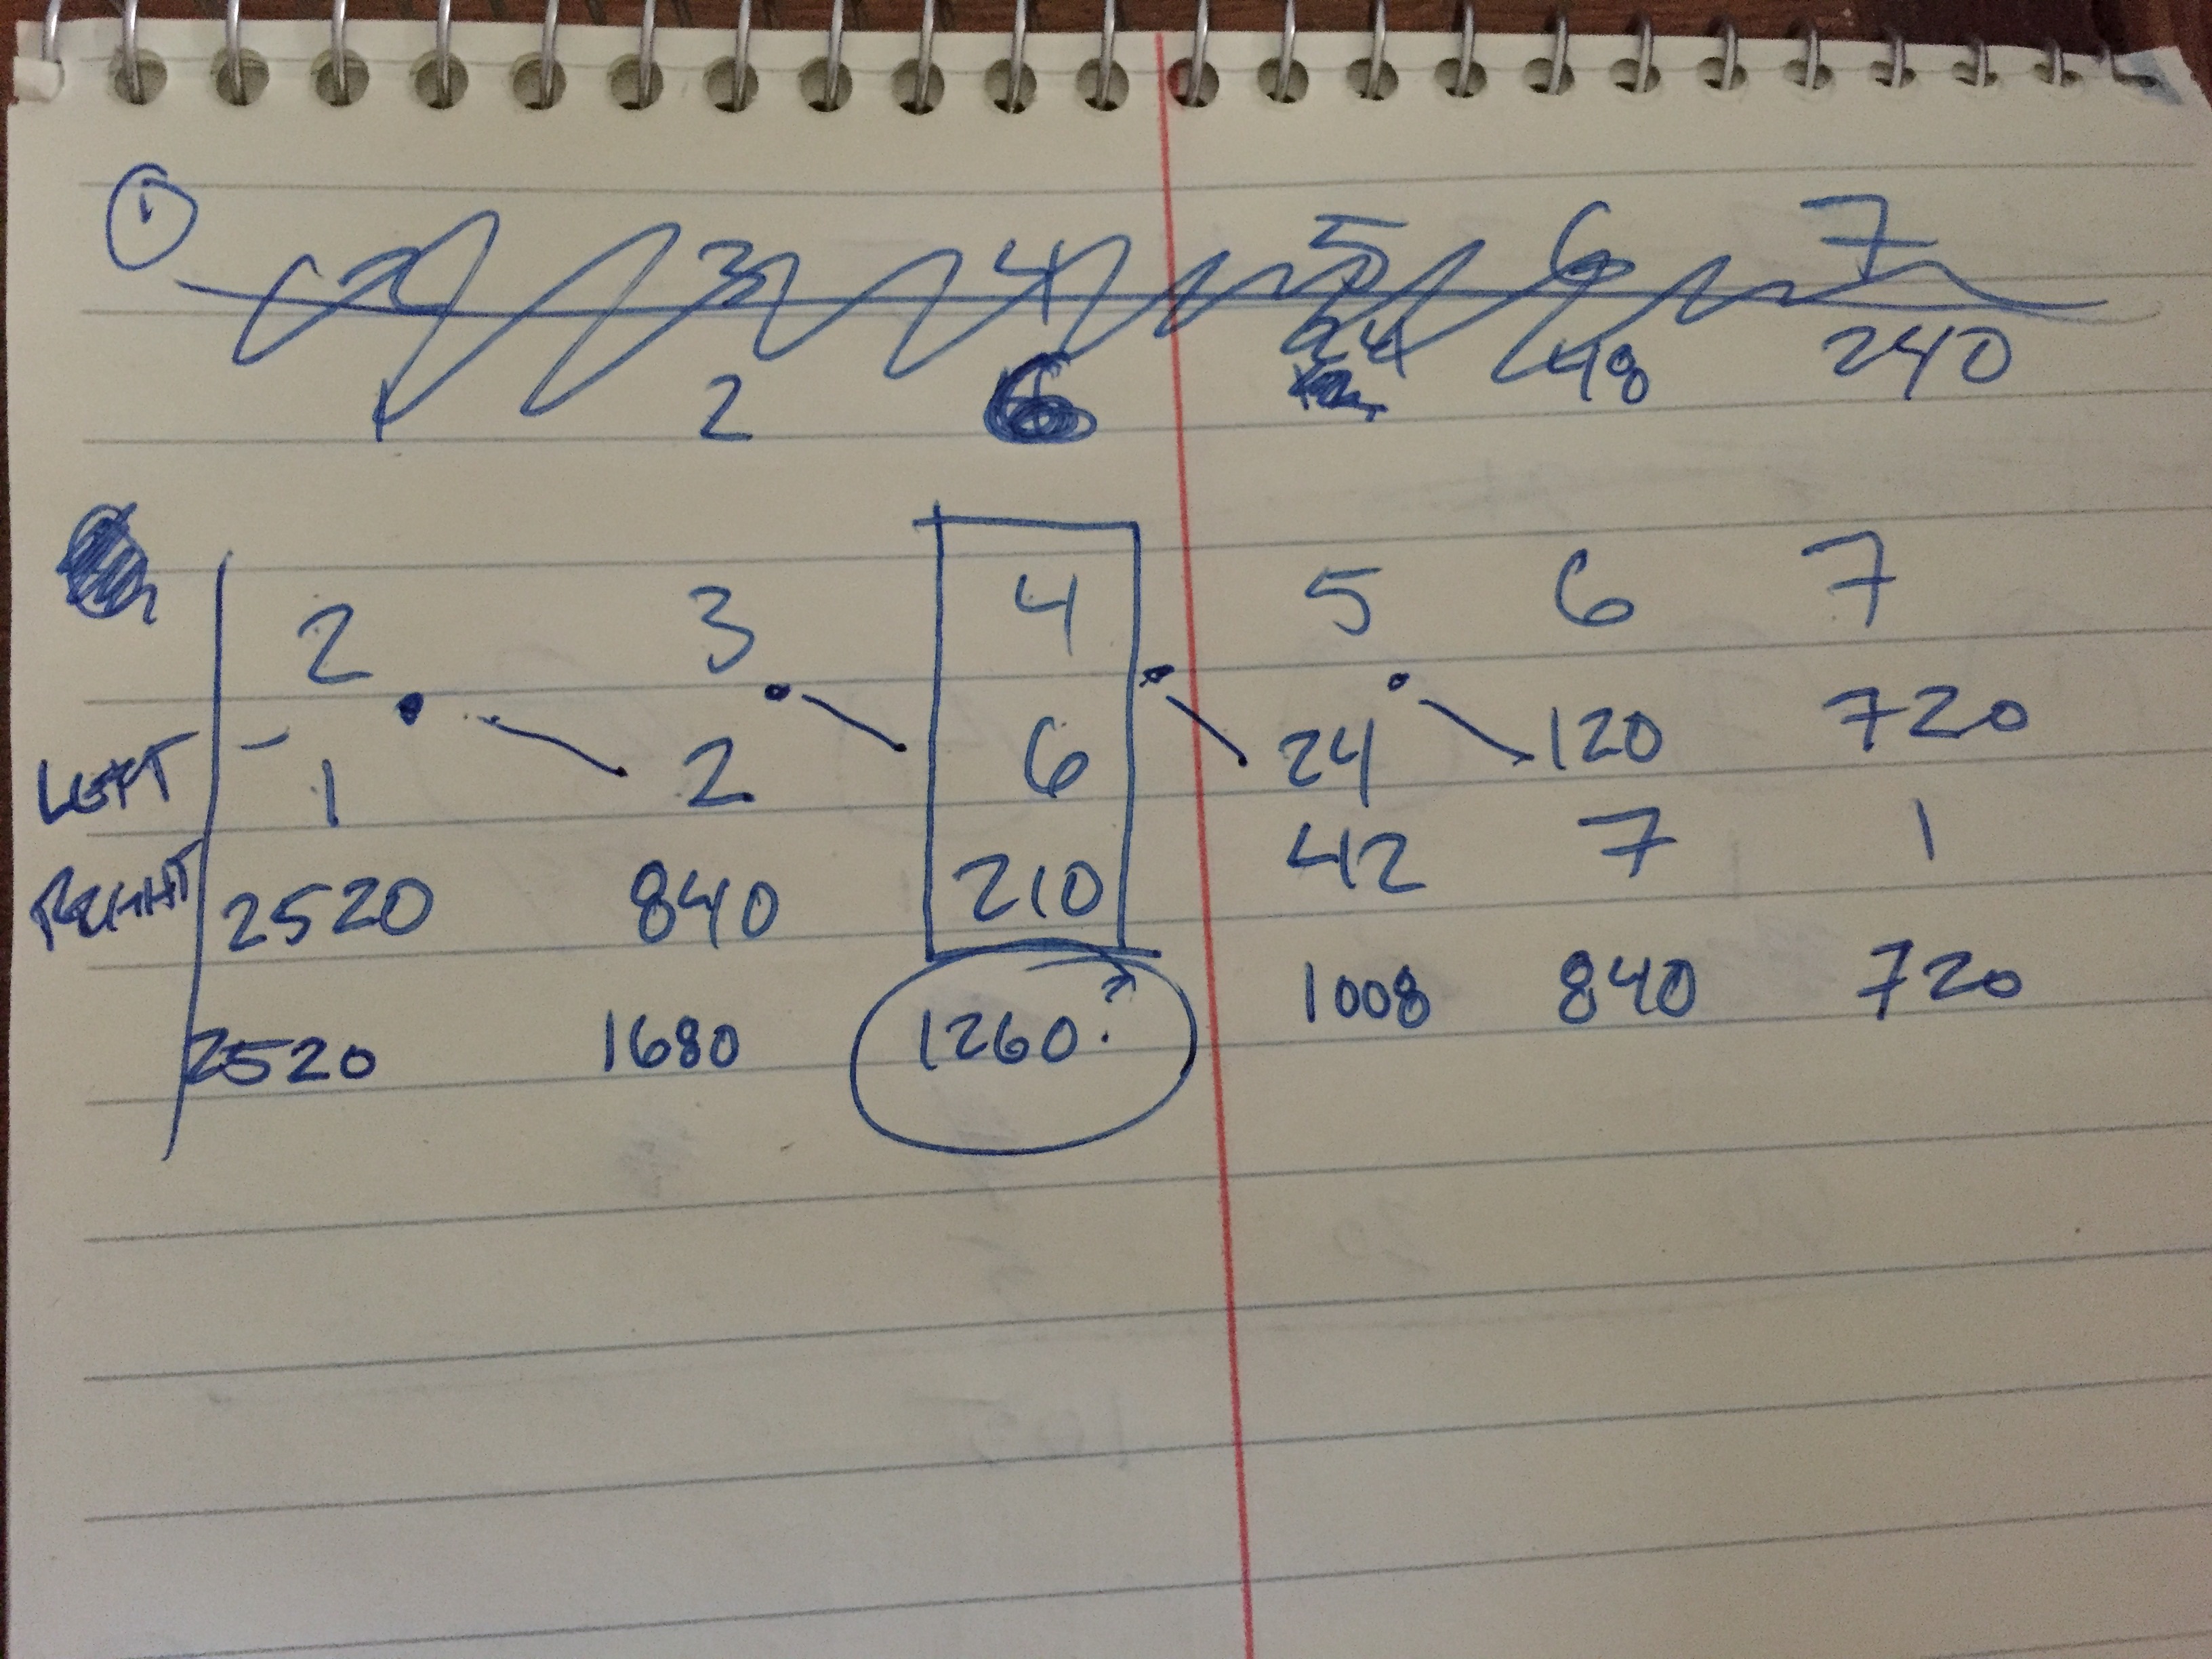 1
2 3 4 5 6 7
1 2 6 24 48 240
2 3 4 5 6 7
LEFT 1 2 6 24 120 720
RIGHT 2520 840 210 42 7 1
2520 1680 1260. 1008 840 720